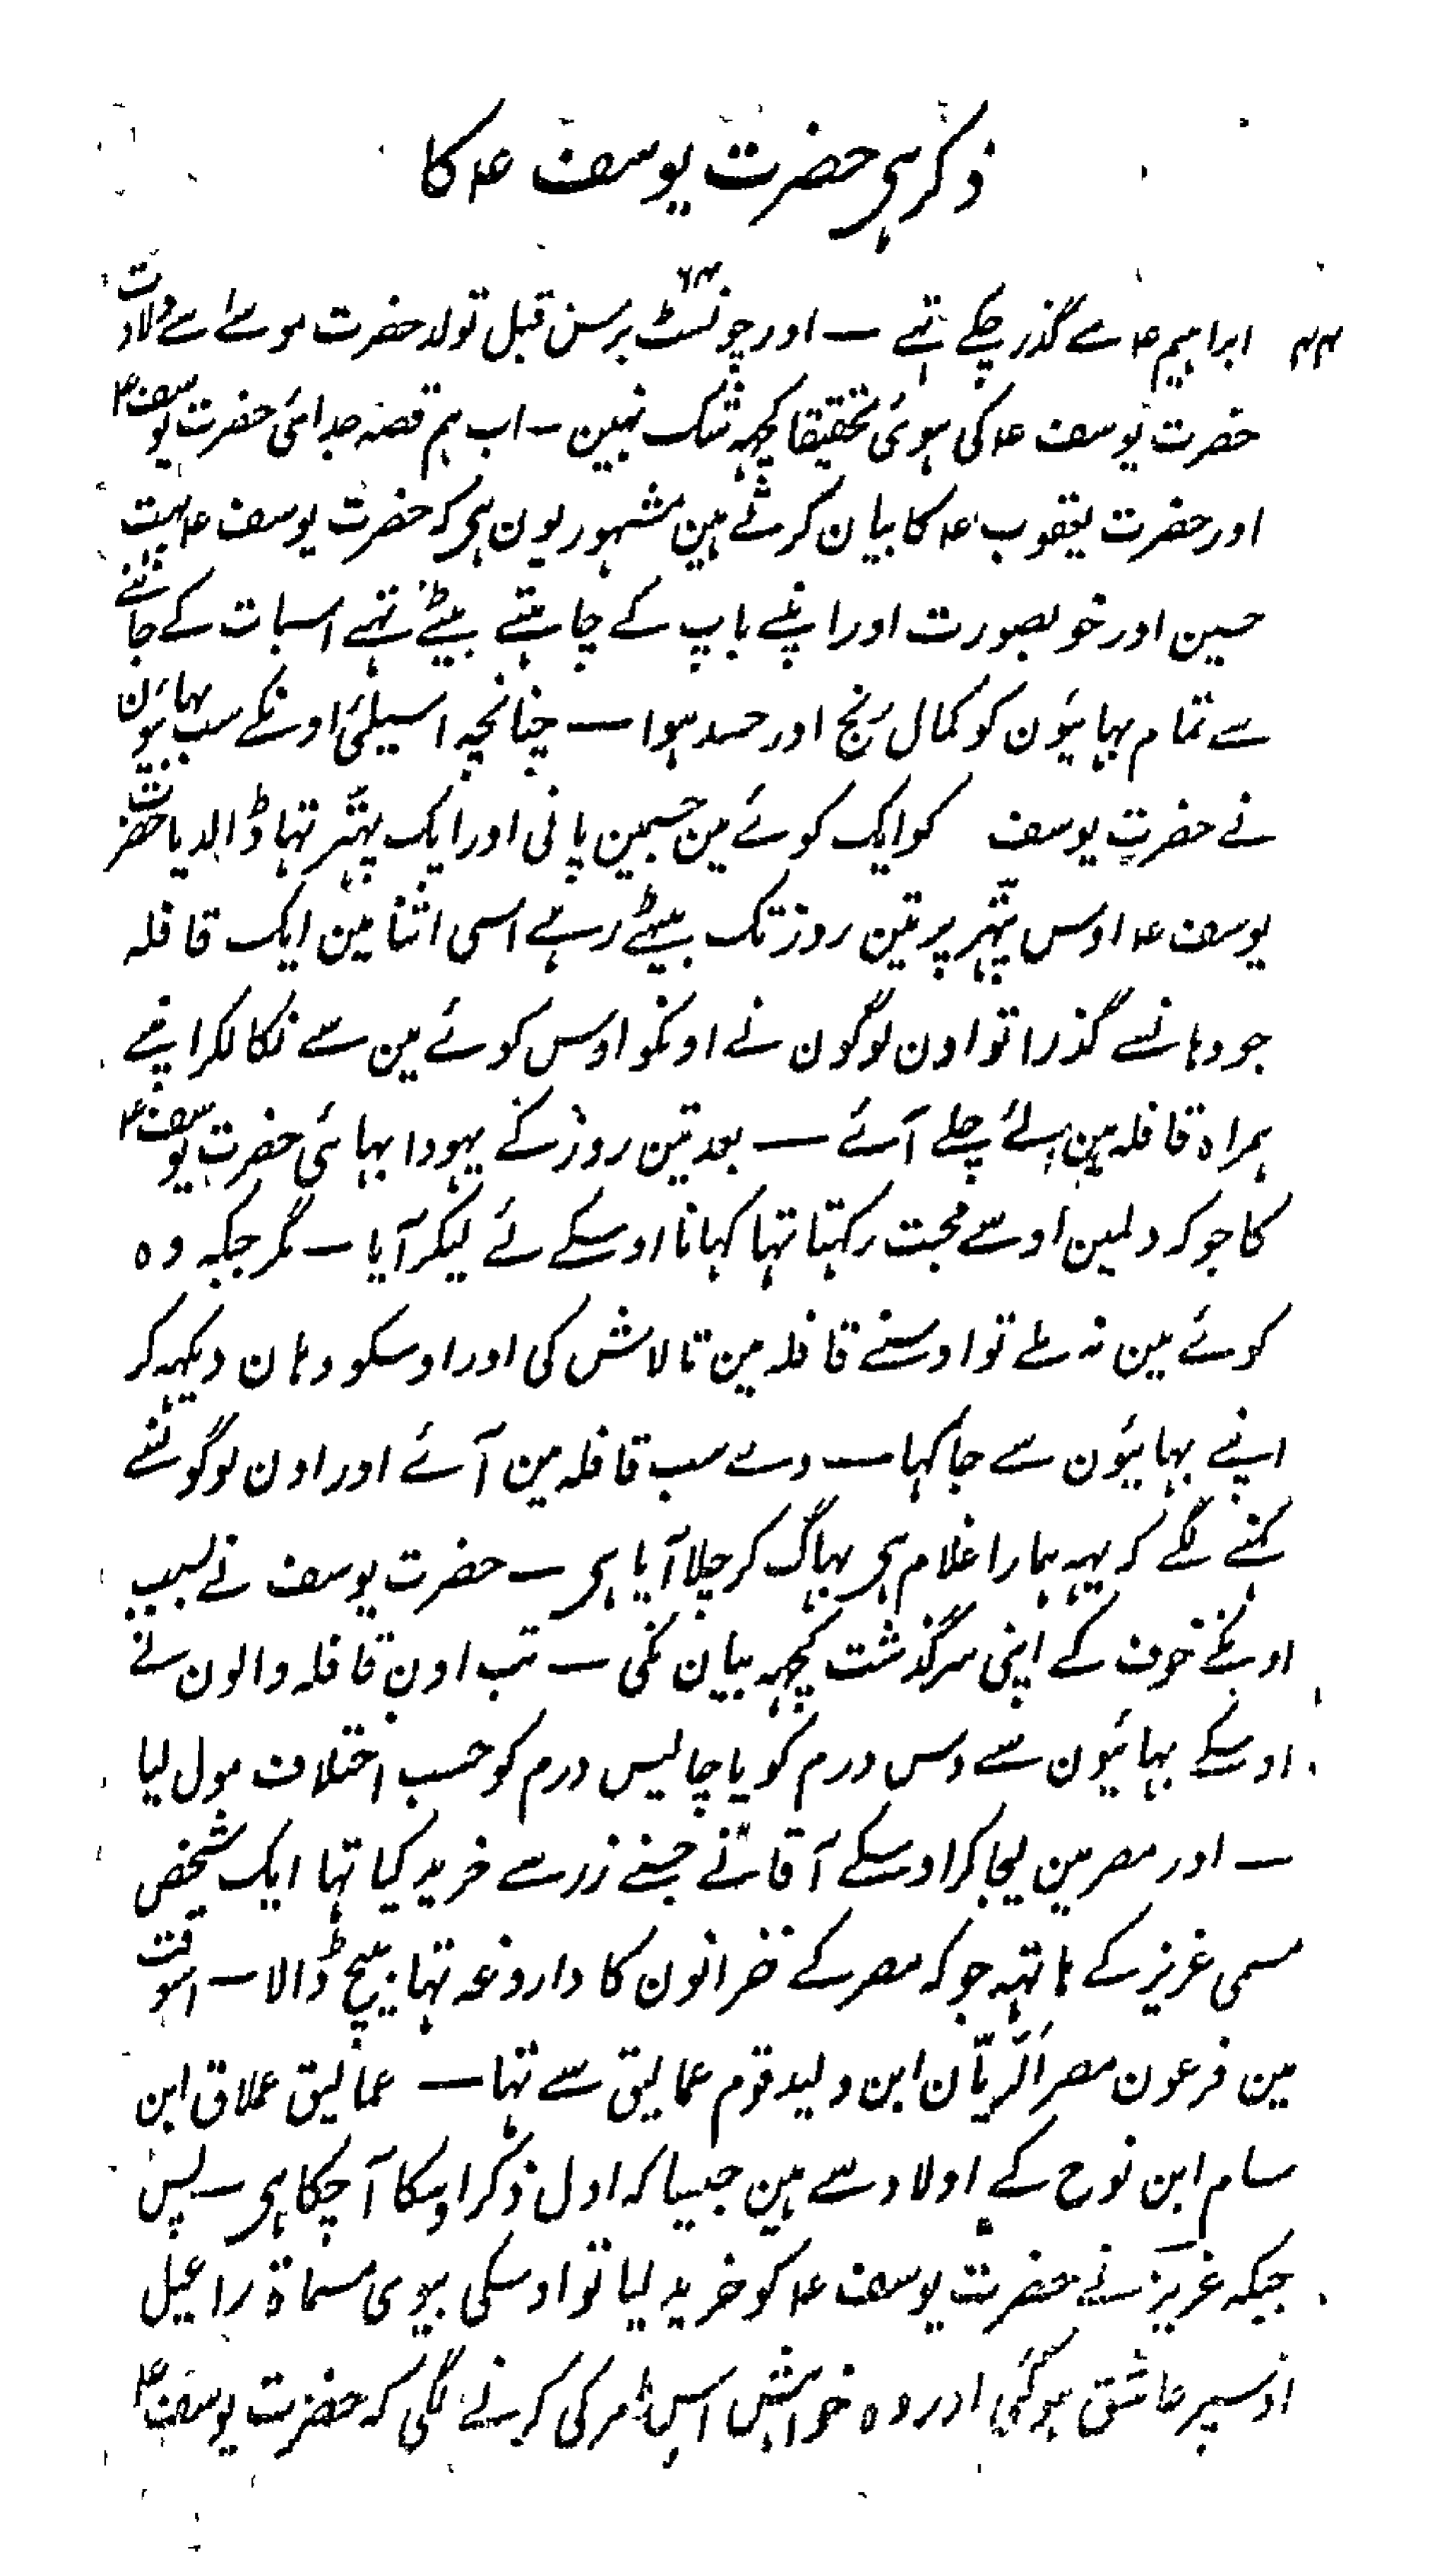 ذکر ہی حضرت یوسف ؑ کا
۴۴ ابراہیم ؑ سے گذر چکے تہے — اور چونسٹہ ۶۴ برس قبل تولد حضرت موسے اسے ولادت
حضرت یوسف ؑ کی ہوئی تحقیقا کچہہ شک نہین — اب ہم قصہ جدائی حضرت یوسف ؑ
اور حضرت یعقوب ؑ کا بیان کرتے ہین مشہور یون ہی کہ حضرت یوسف ؑ بہت
حسین اور خوبصورت اور اپنے باپ کے چاہتے بیٹے تہے اسبات کے جاننے
سے تمام بہایئون کو کمال رنج اور حسد ہوا — چنانچہ اسیلئی اونکے سب بہایئون
نے حضرت یوسف کو ایک کوئے مین جسمین پانی اور ایک پتہر تہا ڈالدیا حضرت
یوسف ؑ اوس پتہر پر تین روز تک بیٹہے رہے اسی اثنا مین ایک قافلہ
جو وہانسے گذرا تو اون لوگون نے اونکو اوس کوئے مین سے نکالکر اپنے
ہمراہ قافلہ مین لئے چلے آئے — بعد تین روز کے یہودا بہائی حضرت یوسف ؑ
کا جو کہ دلمین اوسے محبت رکہتا تہا کہانا اوسکے لئے لیکر آیا — مگر جبکہ وہ
کوئے مین نہ ملے تو اوسنے قافلہ مین تالاش کی اور اوسکو وہان دیکہہ کر
اپنے بہایئون سے جا کہا — وے سب قافلہ مین آئے اور اون لوگونسے
کہنے لگے کہ یہہ ہمارا غلام ہی بہاگ کر چلا آیا ہی — حضرت یوسف نے بسبب
اونکے خوف کے اپنی سرگذشت کچہہ بیان نکی — تب اون قافلہ والون نے
اوسکے بہایئون سے دس درم کو یا چالیس درم کو حسب اختلاف مول لیا
— اور مصر مین لیجا کر اوسکے آقا نے جسنے زر سے خرید کیا تہا ایک شخص
مسمی عزیز کے ہاتہہ جو کہ مصر کے خزانون کا داروغہ تہا بیچ ڈالا — اسوقت
مین فرعون مصر اَلرَیّان ابن ولید قوم عمالیق سے تہا — عمالیق عملاق ابن
سام ابن نوح کے اولاد سے ہین جیسا کہ اول ذکر اوسکا آ چکا ہی — پس
جبکہ عزیز نے حضرت یوسف ؑ کو خرید لیا تو اوسکی بیوی مسماۃ راعیل
اوسپر عاشق ہوگئی اور وہ خواہش اس امر کی کرنے لگی کہ حضرت یوسف ؑ